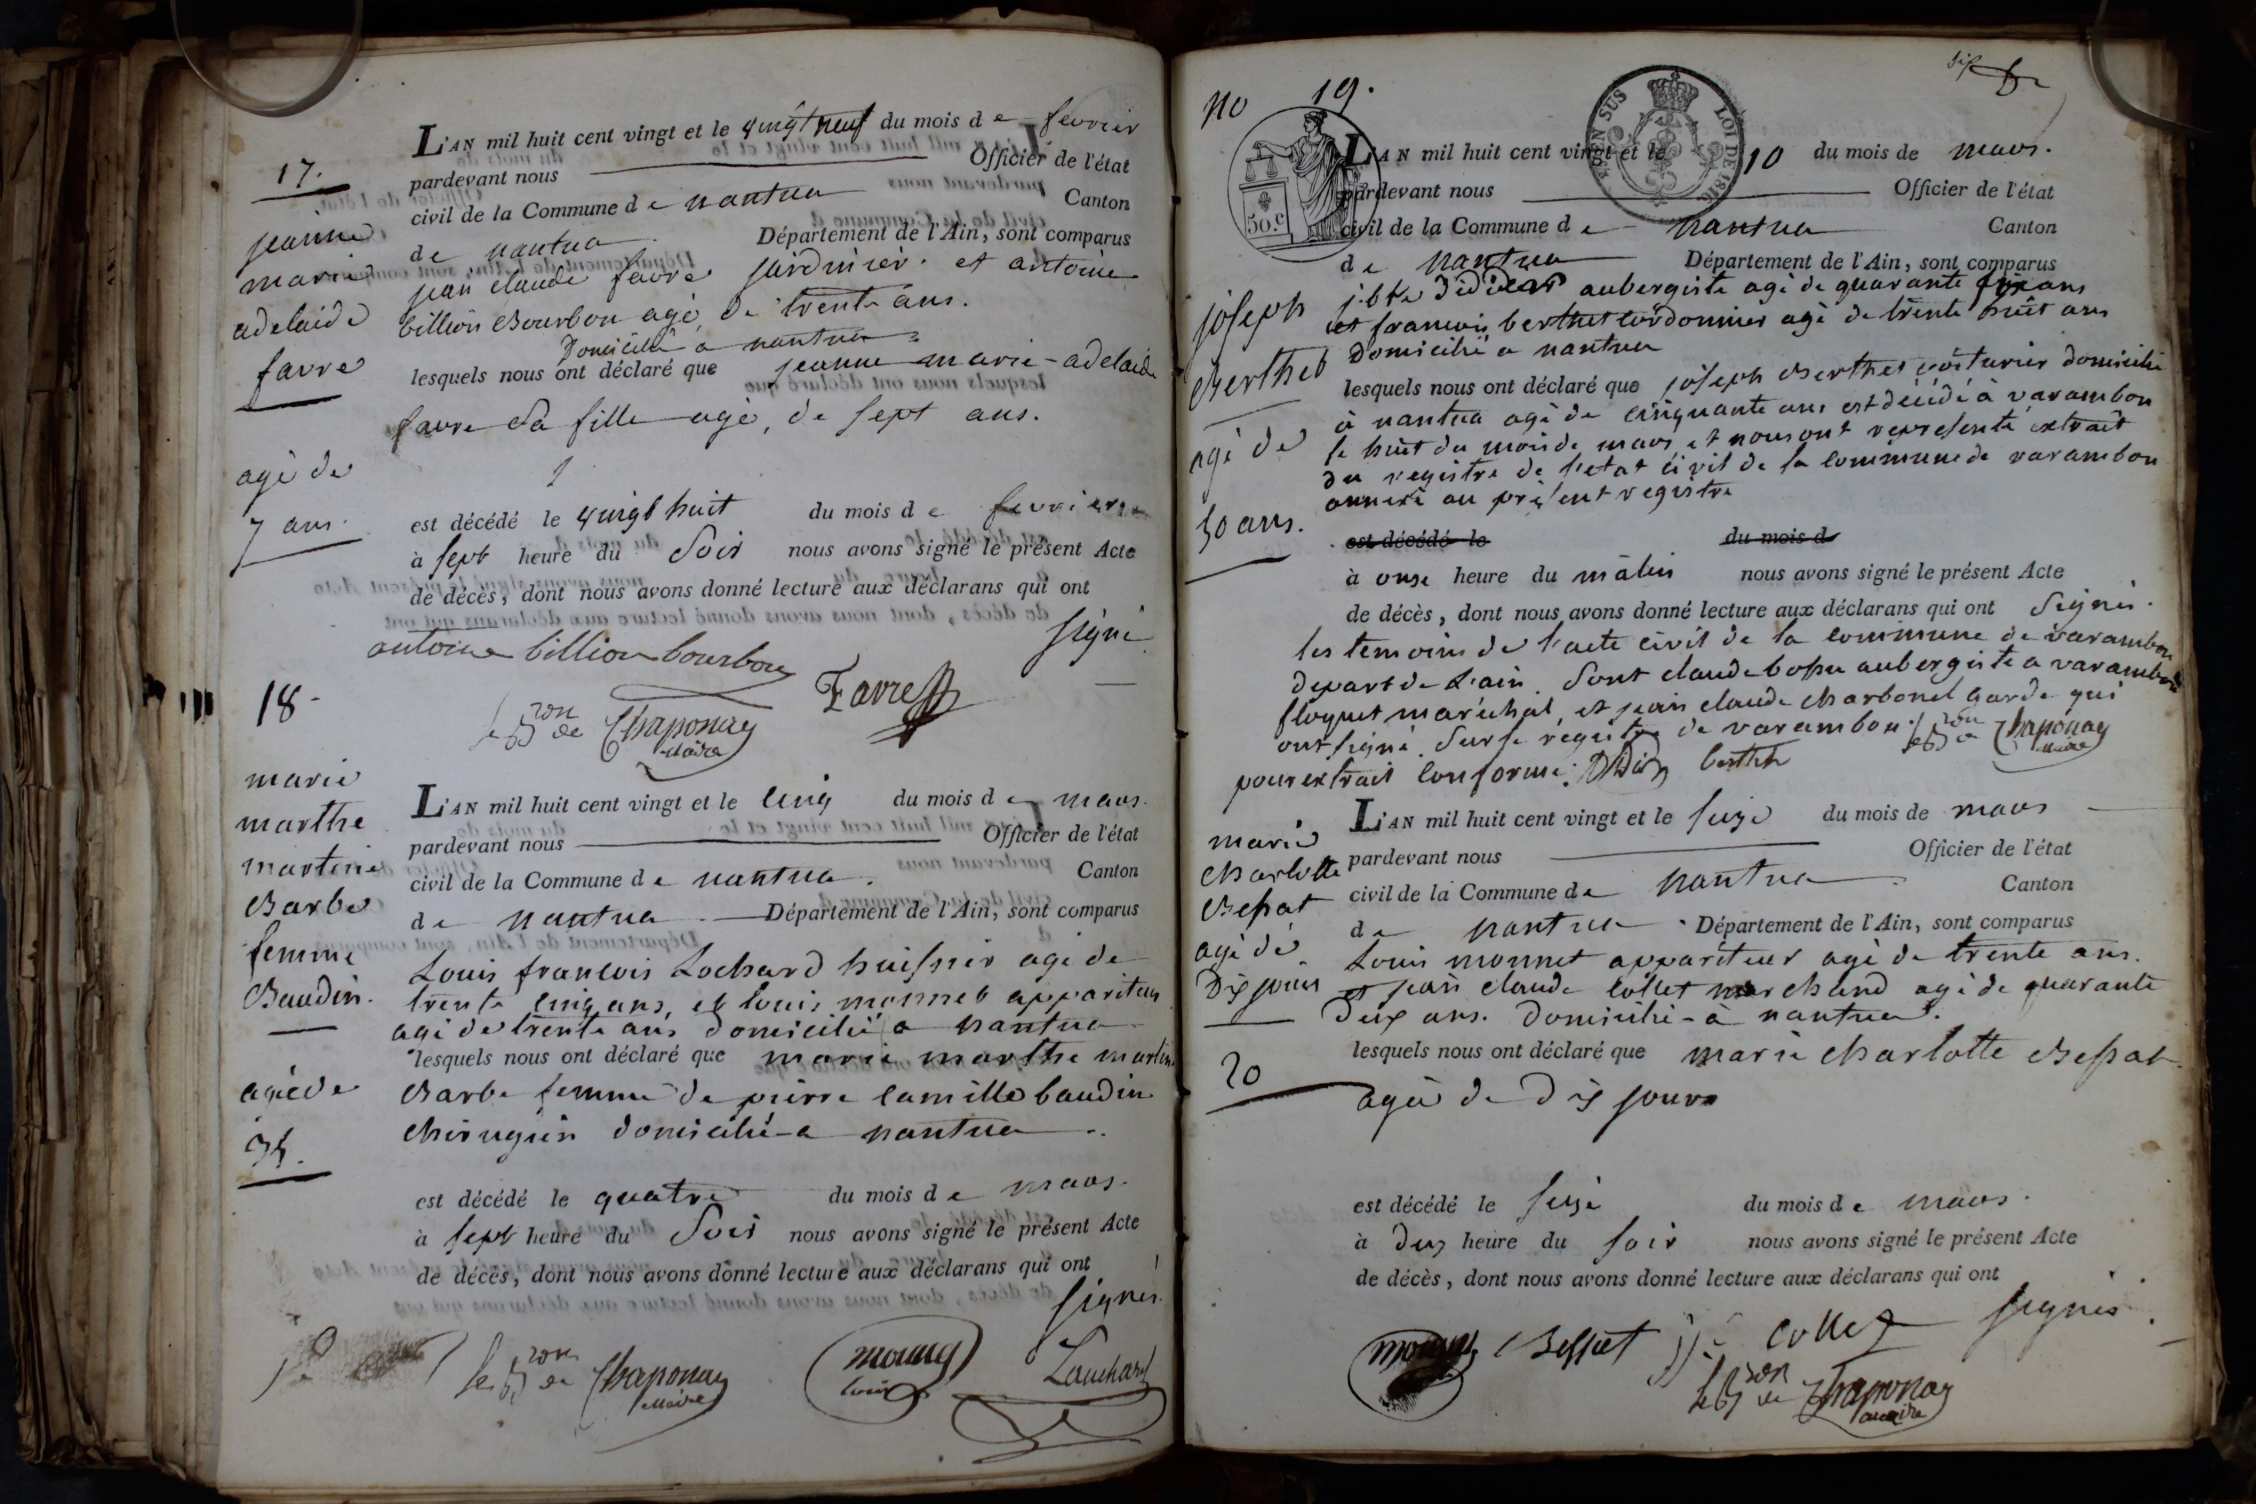 17.
jeanne
marie
adelaide
favre
agé de
7 ans.
L'AN mil huit cent vingt et le vingt neuf du mois de fevrier
pardevant nous Officier de l'état
civil de la Commune de nantua Canton
de nantua Département de l'Ain, sont comparus
jean claude favre jardinier. et antoine
billion Bourbon agé de trente ans.
Domicilié a nantua
lesquels nous ont déclaré que jeanne marie-adelaide
favre sa fille agé, de sept ans.
est décédé le vingt huit du mois de fevrier
à sept heure du soir nous avons signé le présent Acte
de décès, dont nous avons donné lecture aux déclarans qui ont
signé
antoine billion bourbon
Favre
le Bon de Chaponay
Maire
18
marie
marthe
martine
Barbe
femme
Baudin.
agée de
L'AN mil huit cent vingt et le cinq du mois de mars.
pardevant nous Officier de l'état
civil de la Commune de nantua. Canton
de nantua Département de l'Ain, sont comparus
Louis francois Lochard huissier agé de
trente cinq ans, et louis monnet appariteur
agé de trente ans domicilié a nantua
lesquels nous ont déclaré que marie marthe martine
Barbe femme de pierre camille baudin
chirugien domicilié a nantua
est décédé le quatre du mois de mars.
à sept heure du soir nous avons signé le présent Acte
de décès, dont nous avons donné lecture aux déclarans qui ont
signés.
le Bon de Chaponay
Maire
monnet
louis
Lauchard
no 19.
50.c
EN SUS
LOI DE 1816
joseph
Berthet
agé de
50 ans.
L'AN mil huit cent vingt et le 10 du mois de mars.
pardevant nous Officier de l'état
civil de la Commune de nantua Canton
de nantua Département de l'Ain, sont comparus
j.bte Didier aubergiste agé de quarante ans
et francois berthet cordonnier agé de trente huit ans
Domicilié a nantua
lesquels nous ont déclaré que joseph Berthet voiturier domicilié
à nantua agé de cinquante ans est décédé à varambon
le huit du mois de mars et nous ont representé extrait
du registre de l'etat civil de la commune de varambon
annexé au présent registre
est décédé le du mois d
à onze heure du matin nous avons signé le présent Acte
de décès, dont nous avons donné lecture aux déclarans qui ont signés.
les temoins de l'acte civil de la commune de varambon
depart de l'ain. sont claude bossu aubergiste a varambon
floquet maréchal, et jean claude charbonel garde qui
ont signé sur le registre de varambon. le Bon de Chaponay
Maire
pour extrait conforme. Didier berthet
marie
charlotte
Bessat
agé de
Dix jours
20
L'AN mil huit cent vingt et le seize du mois de mars
pardevant nous Officier de l'état
civil de la Commune de nantua Canton
de nantua Département de l'Ain, sont comparus
Louis monnet appariteur agé de trente ans.
et jean claude collet marchand agé de quarante
deux ans. Domicilié-à nantua.
lesquels nous ont déclaré que marie charlotte Bessat
agée de dix jours
est décédé le seize du mois de mars.
à deux heure du soir nous avons signé le présent Acte
de décès, dont nous avons donné lecture aux déclarans qui ont
signés
monnet Bessat collet
le Bon de Chaponay
maire